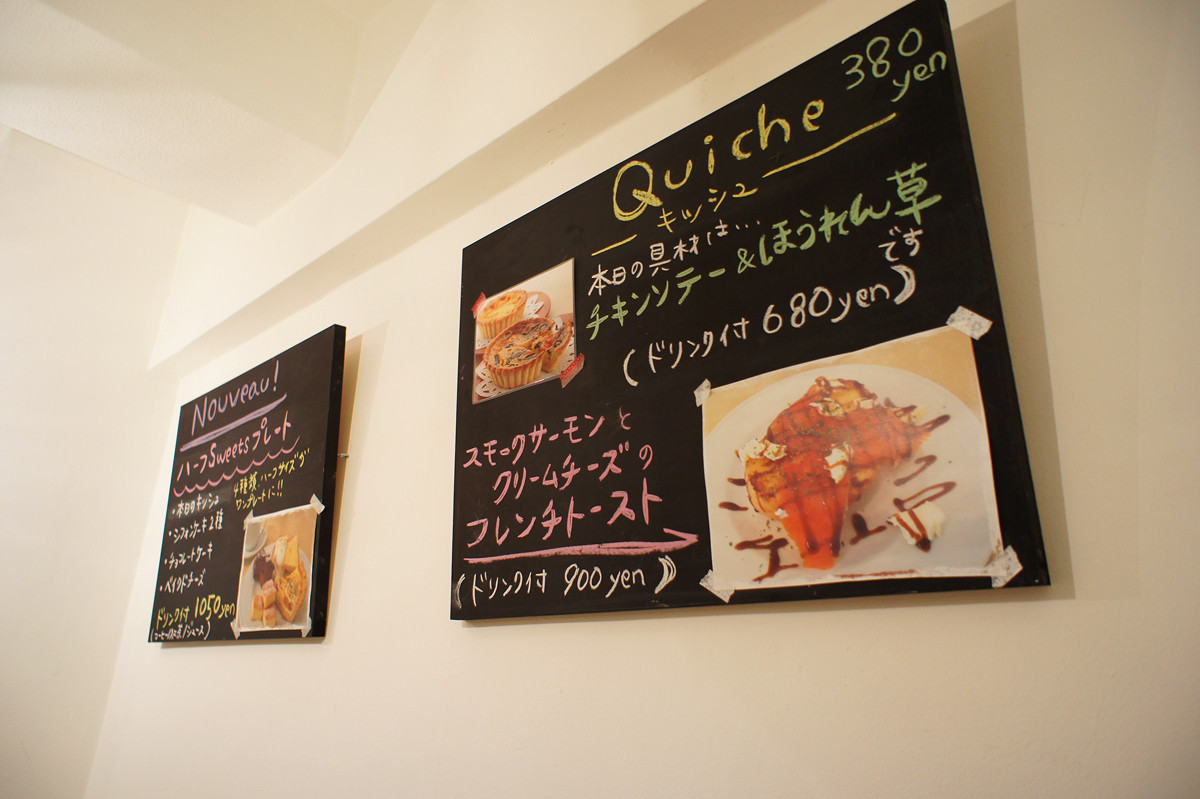 Nouveau!
ハーフSweetsプレート
4種類、ハーフサイズが
ワンプレートに!!
・本日のキッシュ
・シフォンケーキ2種
・チョコレートケーキ
・ベイクドチーズ
ドリンク付 1050yen
(コーヒー/紅茶/ジュース)
Quiche
380
yen
キッシュ
本日の具材は...
チキンソテー&ほうれん草
です
(ドリンク付 680yen)
スモークサーモンと
クリームチーズの
フレンチトースト
(ドリンク付 900yen)